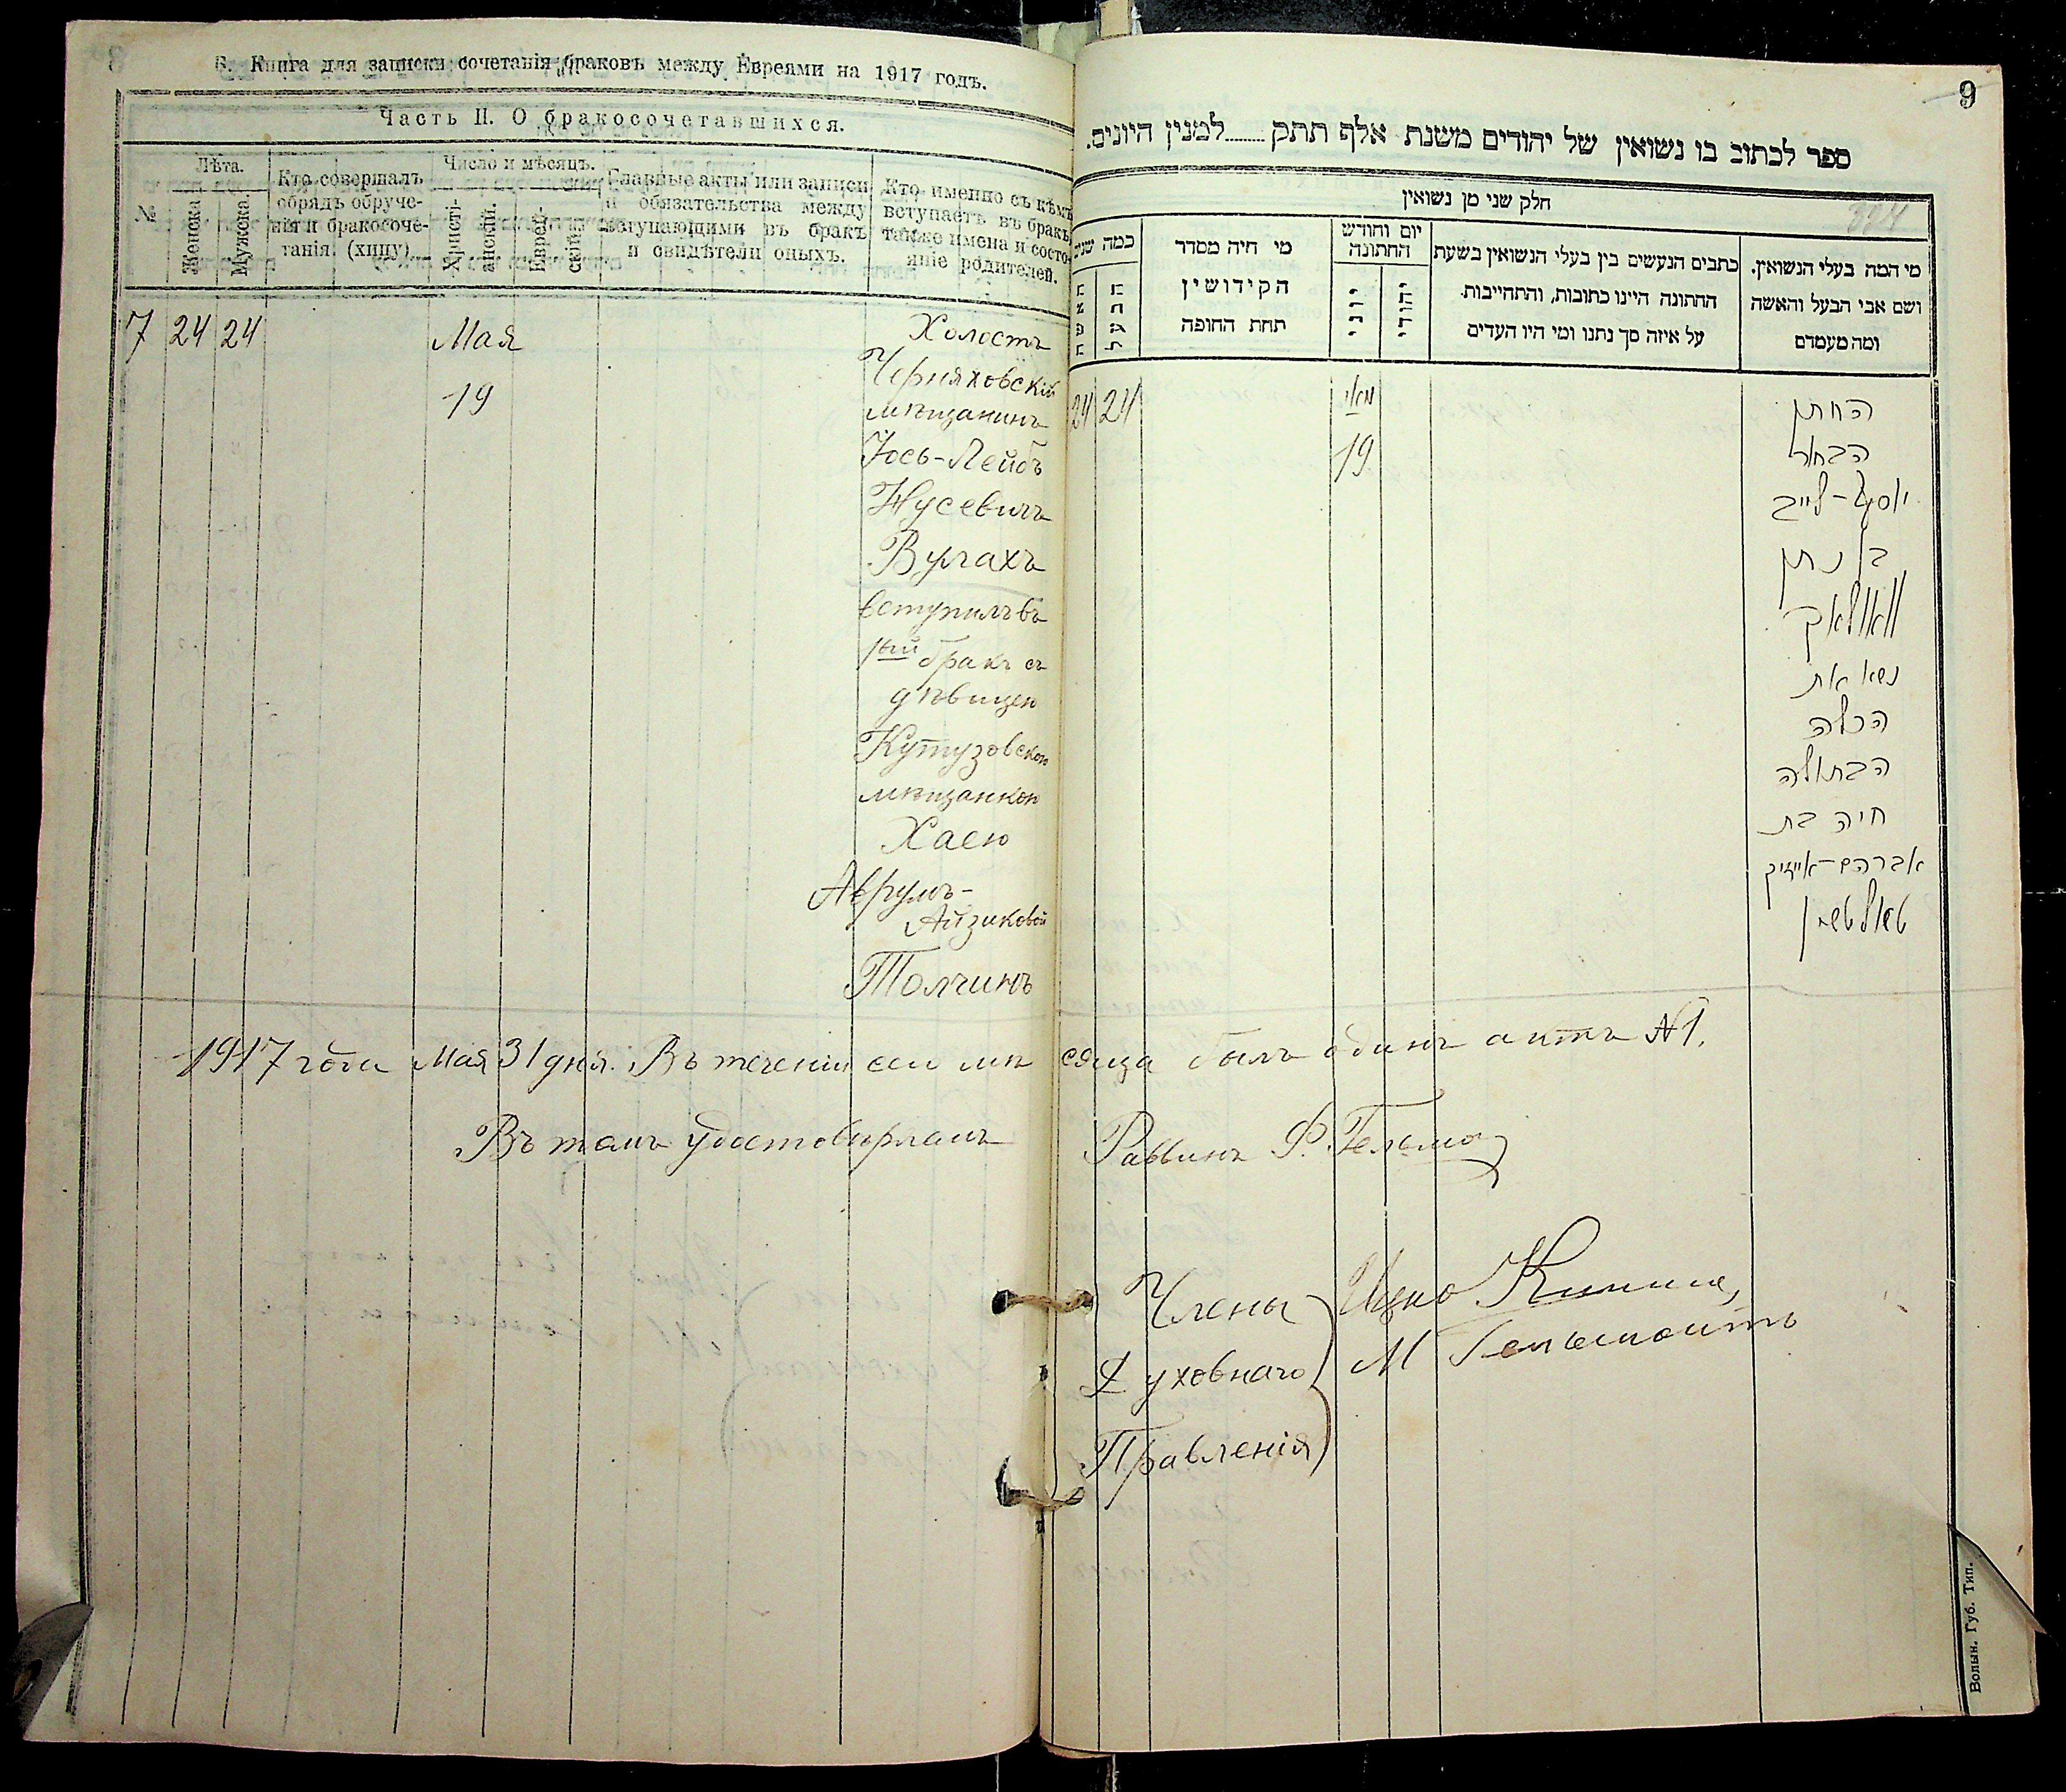 6. Книга для записки сочетанія браковъ между Евреями на 1917 годъ.
Часть II. О бракосочетавшихся.
№
Лѣта.
Женска.
Мужеска.
Кто совершалъ
обрядъ обруче-
нія и бракосоче-
танія. (хипу)
Число и мѣсяцъ.
Христі-
анскій.
Еврей-
скій.
Главные акты или записи
и обязательства между
вступающими въ бракъ
и свидѣтели оныхъ.
Кто именно съ кѣмъ
вступаетъ въ бракъ,
также имена и состо-
яніе родителей.
7 24 24
Мая
19
Холостъ
Черняховскій
мѣщанинъ
Іось-Лейбъ
Нусевичъ
Вулахъ
вступилъ въ
1ый бракъ съ
дѣвицею
Кутузовскою
мѣщанкою
Хаею
Аврумъ-
Айзиковой
Толчинъ
9
ספר לכתוב בו נשואין של יהודים משנת אלף תתק למנין היונים.
חלק שני מן נשואין
324
כמה שנים
האשה
הבעל
מי היה מסדר
הקידושין
תחת החופה
יום וחודש
החתונה
יוני
יהודי
כתבים הנעשים בין בעלי הנשואין בשעת
החתונה היינו כתובות, והתחייבות
על איזה סך נתנו ומי היו העדים
מי המה בעלי הנשואין.
ושם אבי הבעל והאשה
ומה מעמדם
24 24
מאי
19
החתן
הבחור
יוסף-לייב
בן נתן
וואולאך
נשא את
הכלה
הבתולה
חיה בת
אברהם-אייזיק
1917 года Мая 31 дня. Въ теченіи сего мѣсяца былъ одинъ актъ № 1.
Въ томъ удостовѣряемъ Раввинъ Ф.
Члены
Духовнаго
Правленія
М
Волын. Губ. Тип.